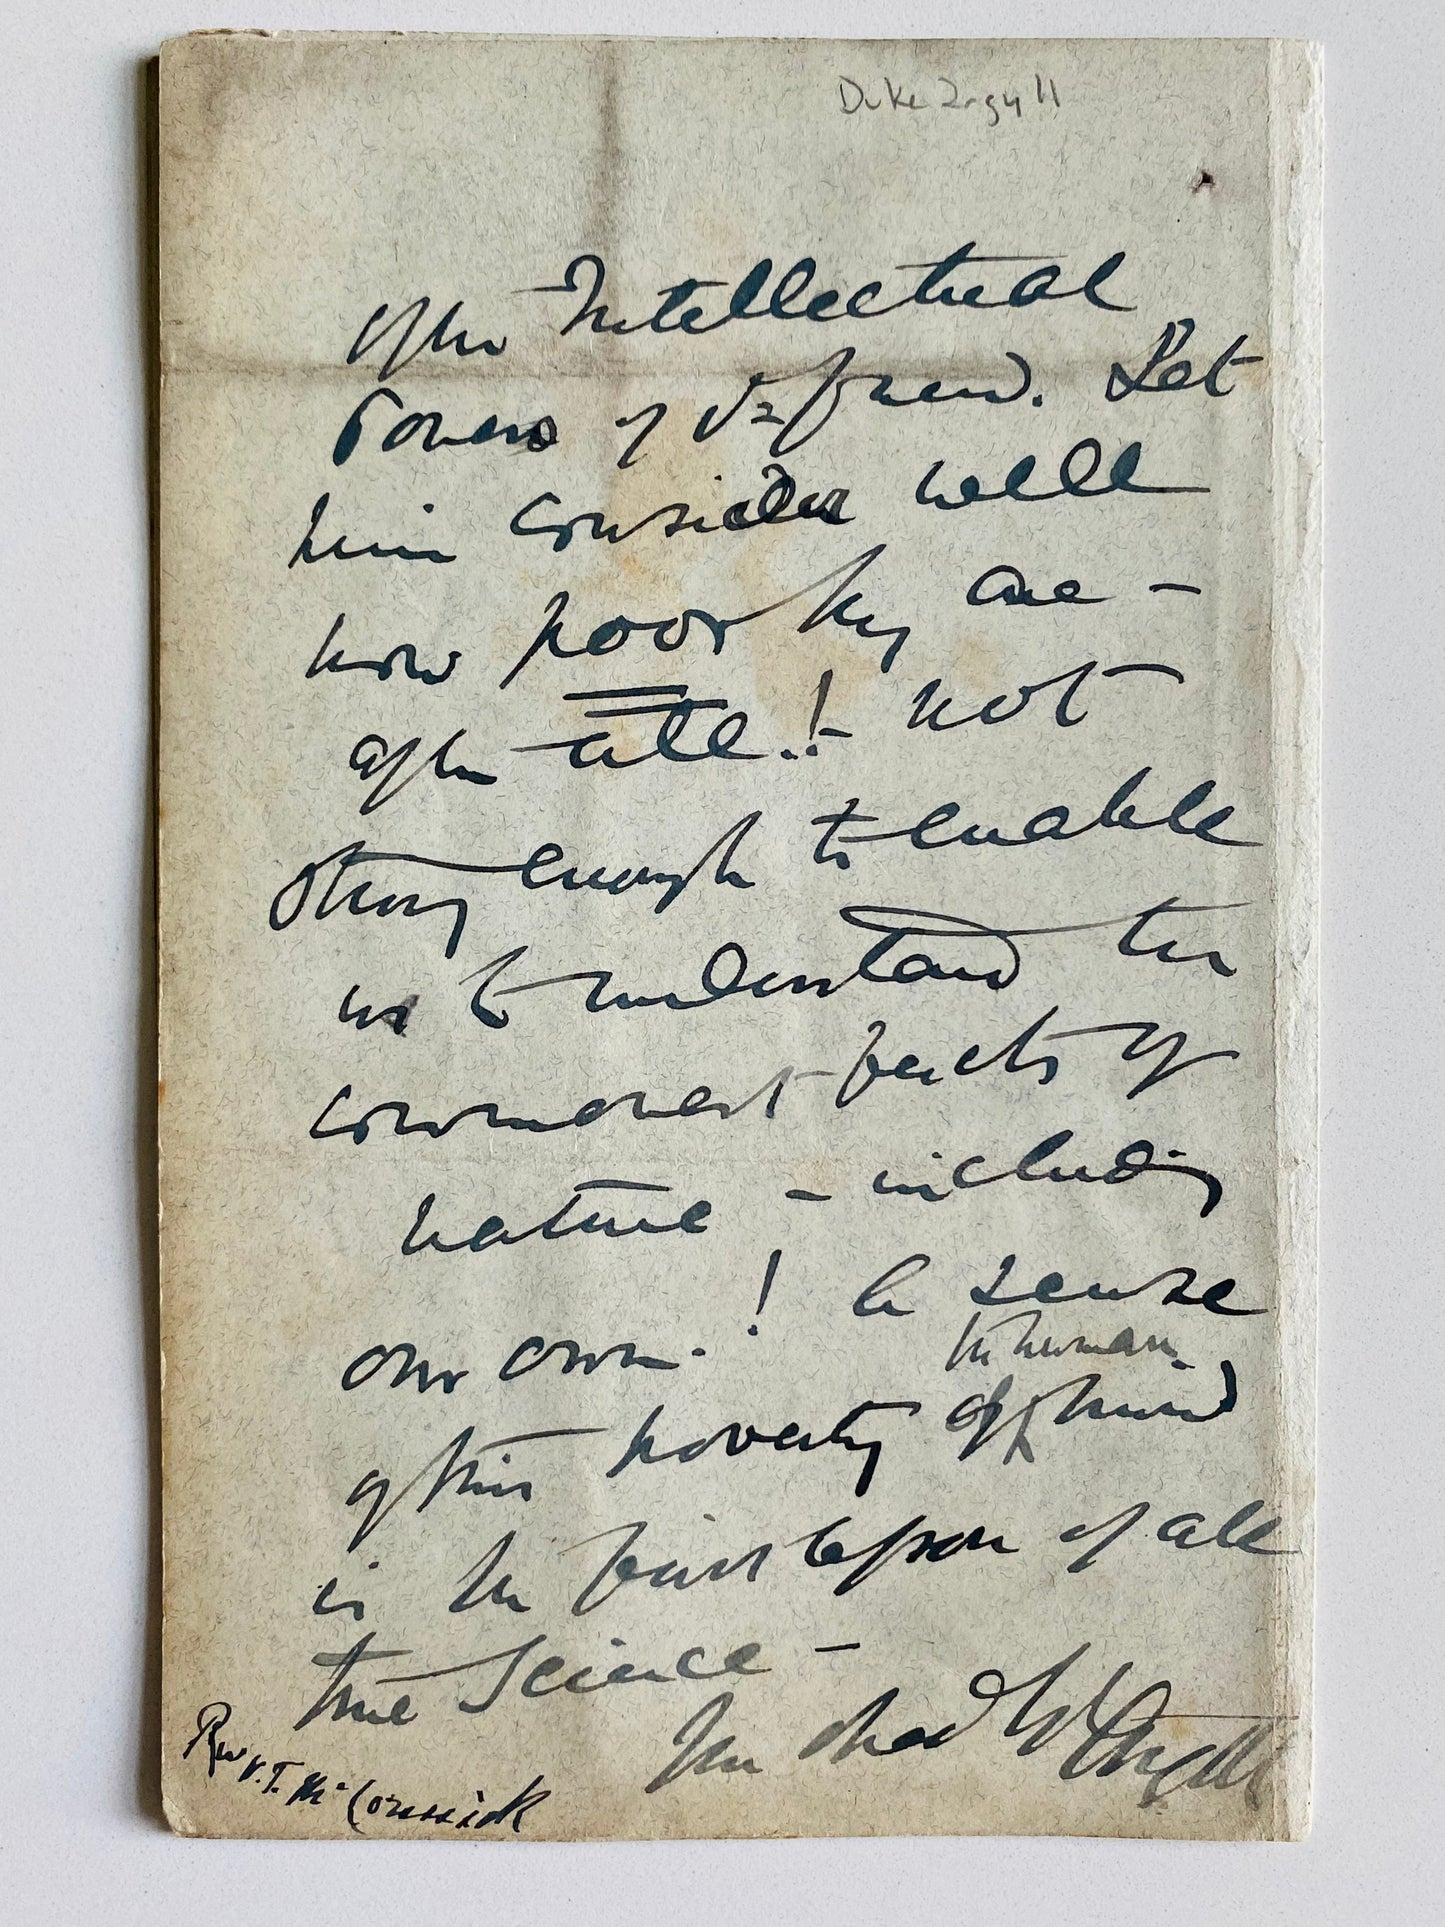 Duke Argyll
of the Intellectual
Powers of yr friend. Let
him consider well
how poor they are -
after all.! - not
strong enough to enable
us to understand the
commonest facts of
nature - including
our own. ! A sense
the human
of this poverty of mind
is the first lesson of all
true Science -
Argyll
Rev V.T. McCormick